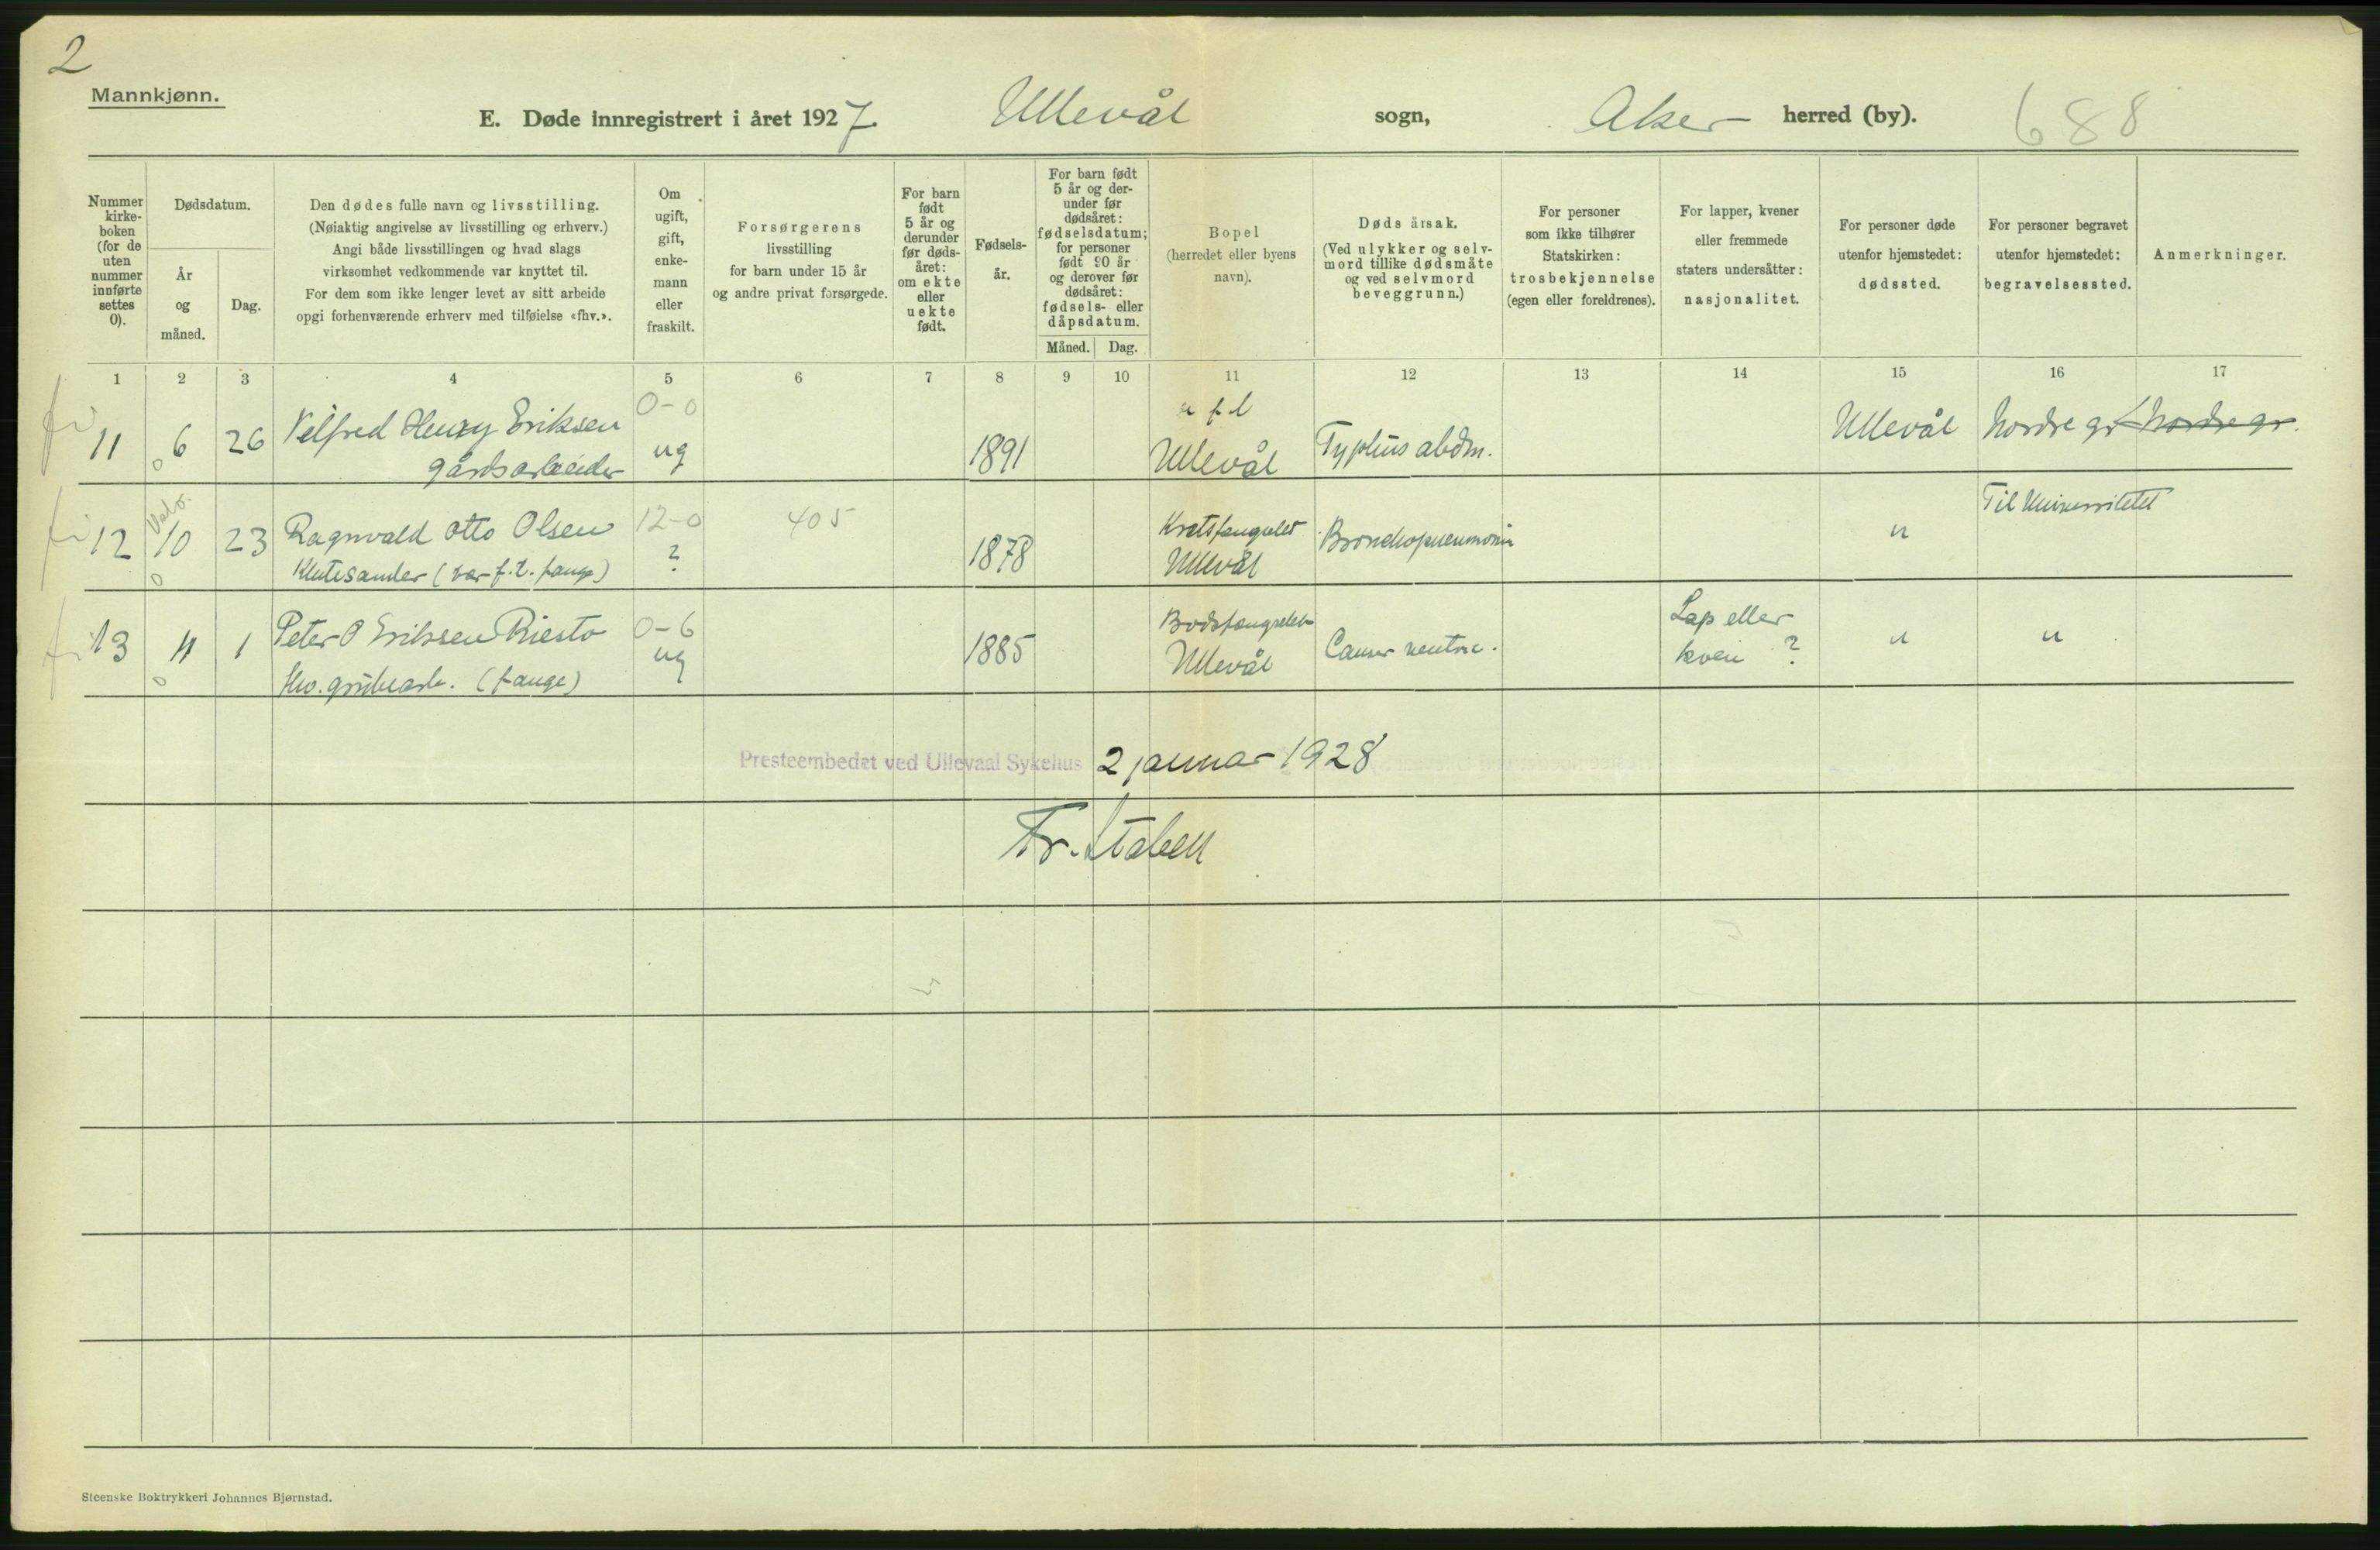 2
Mannkjønn.
E. Døde innregistrert i året 1927. Ullevål sogn, Aker herred (by). 688
Nummer kirke- boken (for de uten nummer innførte settes 0).
Dødsdatum.
År og måned.
Dag.
Den dødes fulle navn og livsstilling.
(Nøiaktig angivelse av livsstilling og erhverv.)
Angi både livsstillingen og hvad slags
virksomhet vedkommende var knyttet til.
For dem som ikke lenger levet av sitt arbeide
opgi forhenværende erhverv med tilføielse «fhv.».
Om ugift, gift, enke- mann eller fraskilt.
Forsørgerens
livsstilling
for barn under 15 år
og andre privat forsørgede.
For barn født 5 år og derunder før døds- året: om ekte eller uekte født.
Fødsels- år.
For barn født 5 år og der- under før dødsåret: fødselsdatum; for personer født 90 år og derover før dødsåret: fødsels- eller dåpsdatum.
Måned. Dag.
Bopel
(herredet eller byens
navn).
Dødsårsak.
(Ved ulykker og selv-
mord tillike dødsmåte
og ved selvmord
beveggrunn.)
For personer
som ikke tilhører
Statskirken:
trosbekjennelse
(egen eller foreldrenes).
For lapper, kvener
eller fremmede
staters undersåtter:
nasjonalitet.
For personer døde
utenfor hjemstedet:
dødssted.
For personer begravet
utenfor hjemstedet:
begravelsessted.
Anmerkninger.
1 2 3 4 5 6 7 8 9 10 11 12 13 14 15 16 17
0-0
11 6 26 Vilfred Henry Eriksen ug 1891 Ullevål Typhus abdm. Ullevål Nordre gr. Nordre gr.
0 gårdsarbeider
12 10 23 Ragnvald Otto Olsen 12-0 405 1878 Kretsfengselet Bronchopneumoni " Til Universitetet
0 Klutesamler (var f.t. fange) ? Ullevål
13 11 1 Peter O Eriksen Riesto 0-6 1885 Botsfengselet Cancer ventric. Lap eller " "
0 fhv. grubearb. (fange) ug Ullevål kven ?
Presteembedet ved Ullevaal Sykehus 2 januar 1928
Fr. Stabell
Steenske Boktrykkeri Johannes Bjørnstad.